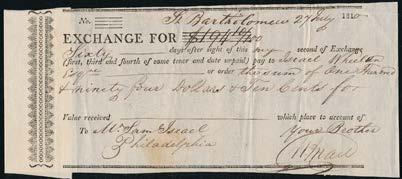 No. St. Bartholomew 27 July 181
EXCHANGE FOR
Sixty days after sight of this my second of Exchange
(first, third and fourth of same tenor and date unpaid) pay to Israel Whelen
Esqre or order the sum of One
& ninety four Dollars & Ten Cents for
Value received which place to account of
To Mr. Sam Israel Your Brother
Philadelphia